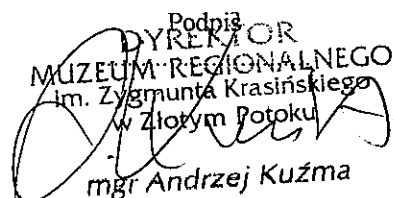 Podpis
DYREKTOR
MUZEUM REGIONALNEGO
im. Zygmunta Krasińskiego
w Złotym Potoku
mgr Andrzej Kuźma